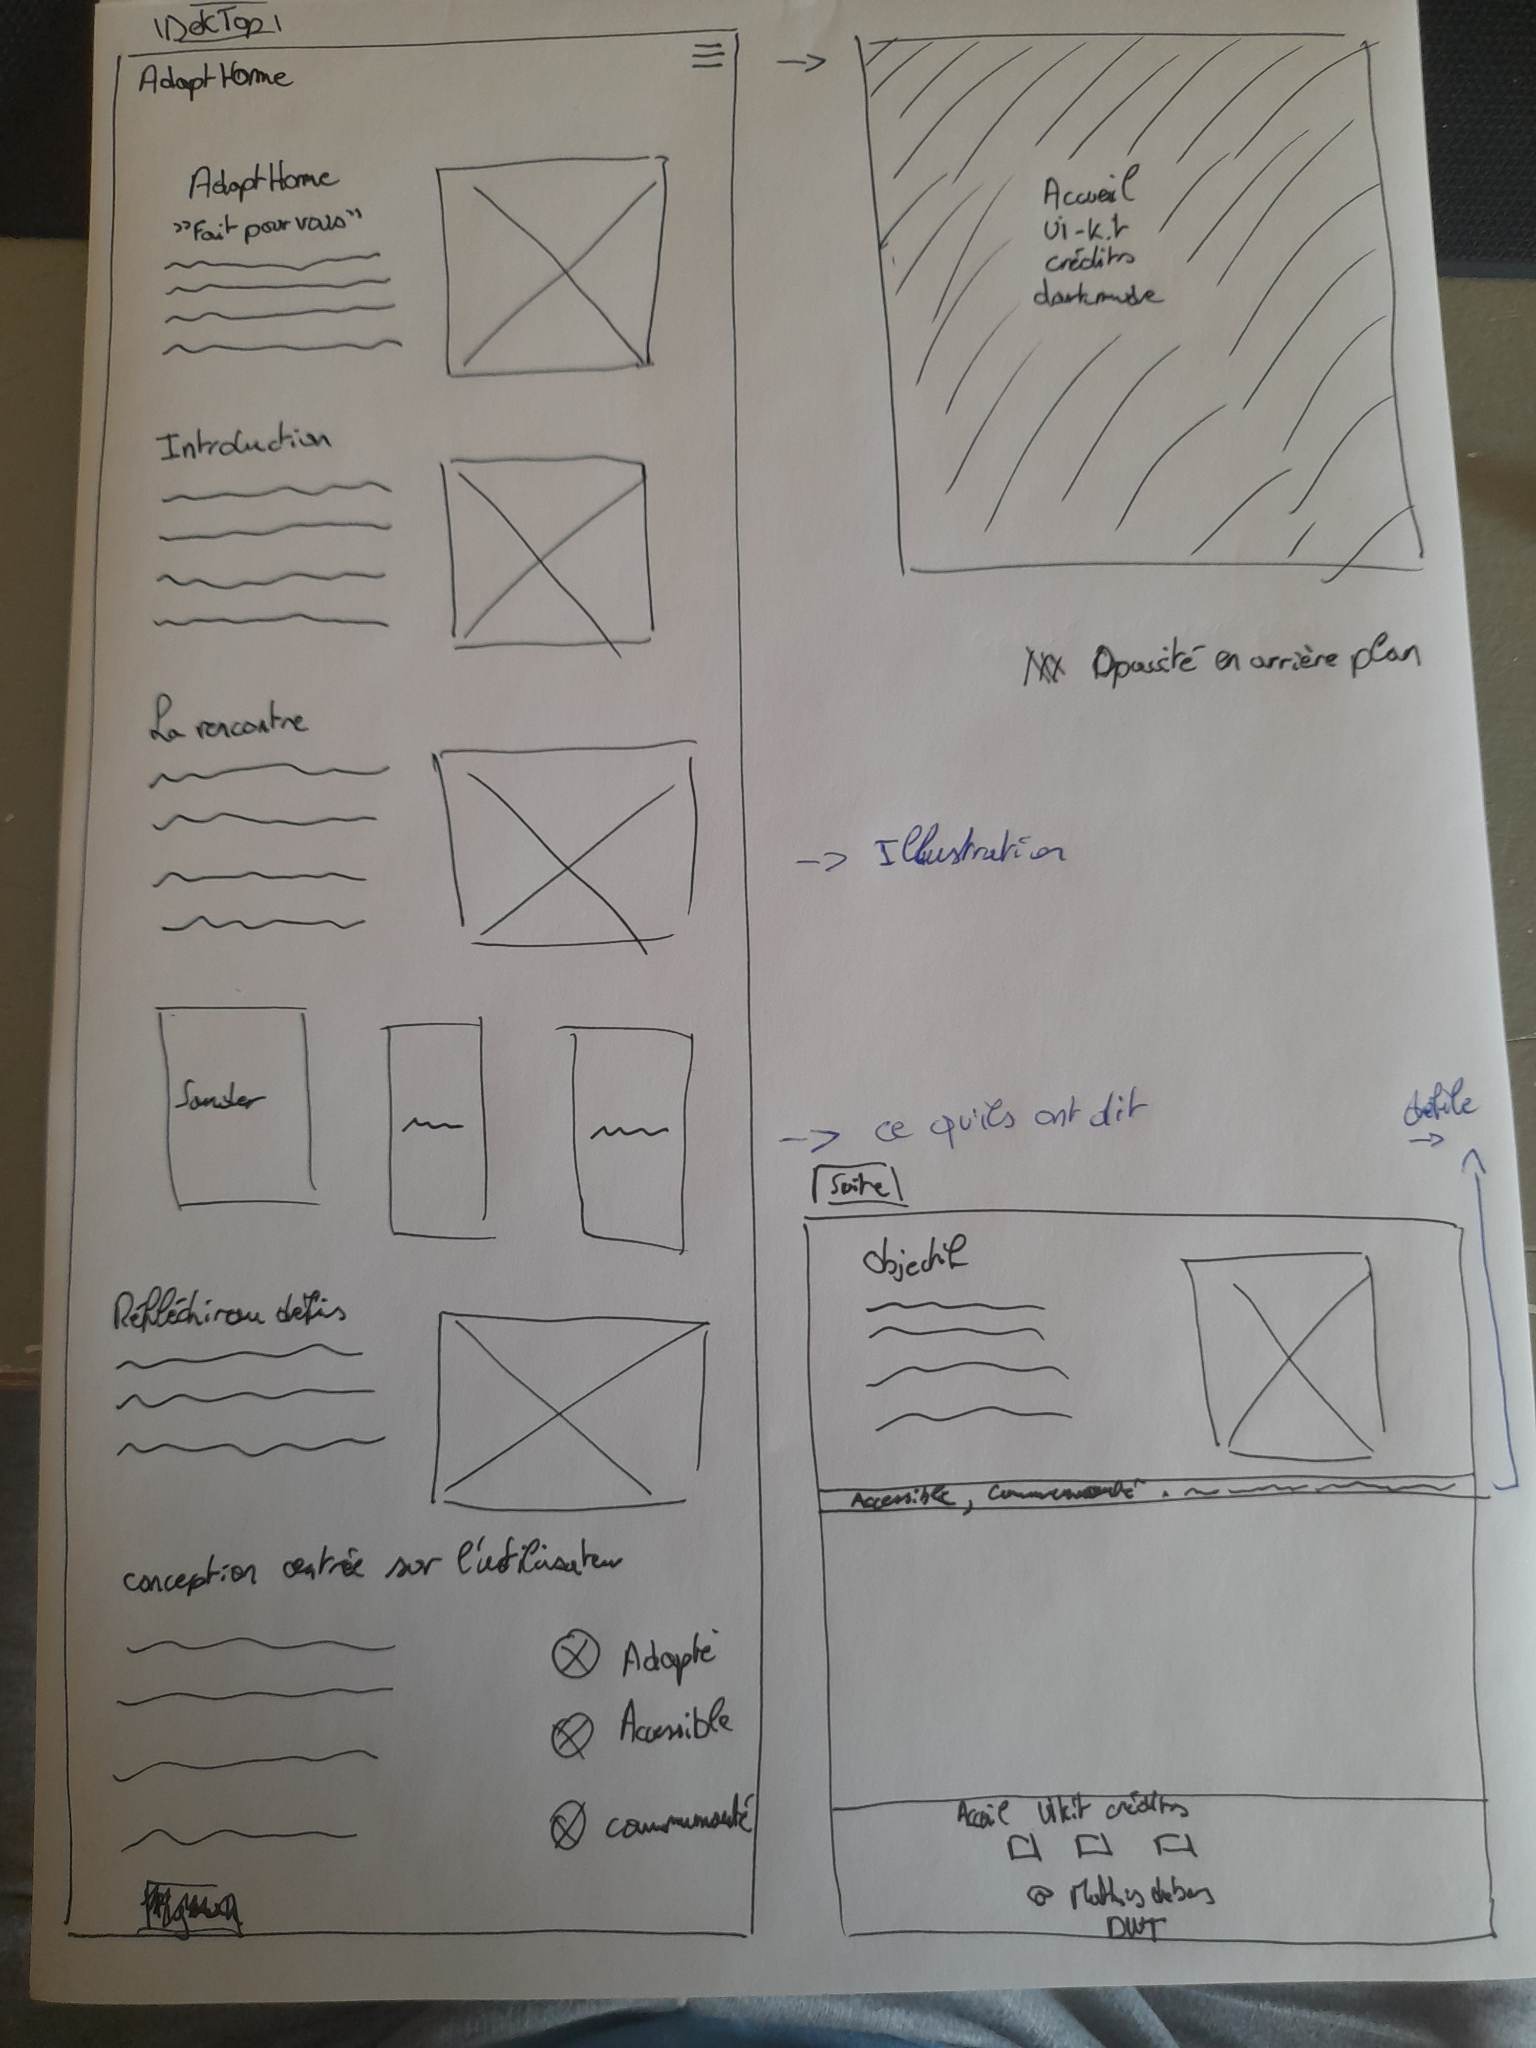 DekTop
AdaptHome
AdaptHome
"Fait pour vous"
Introduction
La rencontre
Sander
Réfléchir au défis
conception centrée sur l'utilisateur
Adapté
Accessible
communauté
Accueil
Ui-kit
crédits
darkmode
Opacité en arrière plan
-> Illustration
-> ce qu'ils ont dit
défile
Suite
Objectif
Accessible, Communauté
Accueil Uikit crédits
Mathis
DWT